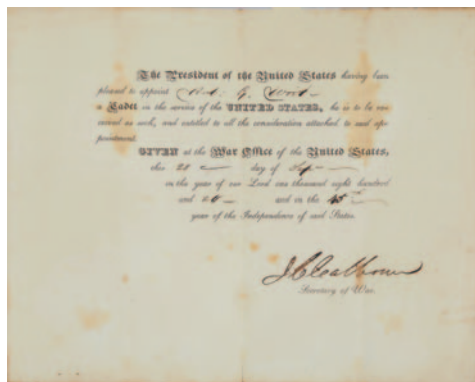 The President of the United States having been
pleased to appoint Wm. G. Wood
a Cadet in the service of the UNITED STATES, he is to be res-
pected as such, and entitled to all the consideration attached to said ap-
pointment.
GIVEN at the War Office of the United States,
this 28 day of Sep
in the year of our Lord one thousand eight hundred
and 20 and in the 45th
year of the Independence of said States.
J C Calhoun
Secretary of War.